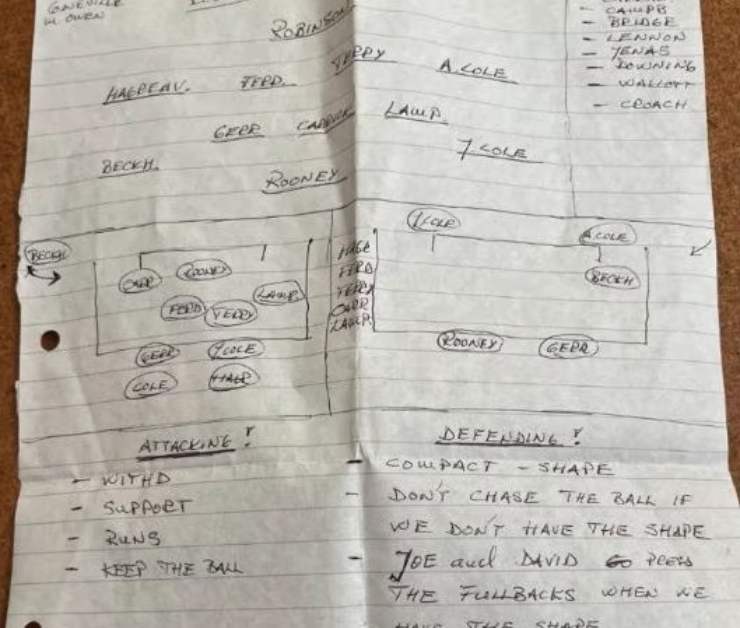 M. OWEN
- BRIDGE
- LENNON
- JENAS
- DOWNING
- WALLOTT
- CROACH
ROBINSON
TERRY
A. COLE
HAGREAV.
FERD.
LAMP.
GERR
CARRICK
J. COLE
BECKH.
ROONEY
BECKH
CARR
ROONEY
LAMP.
FERD
TERRY
GERR
J. COLE
COLE
HARG
FERD
TERRY
CARR
LAMP.
J. COLE
A. COLE
BECKH
ROONEY
GERR
ATTACKING!
- WITHD
- SUPPORT
- RUNS
- KEEP THE BALL
DEFENDING!
- COMPACT - SHAPE
- DON'T CHASE THE BALL IF
WE DON'T HAVE THE SHAPE
- JOE and DAVID GO PRESS
THE FULLBACKS WHEN WE
HAVE THE SHAPE